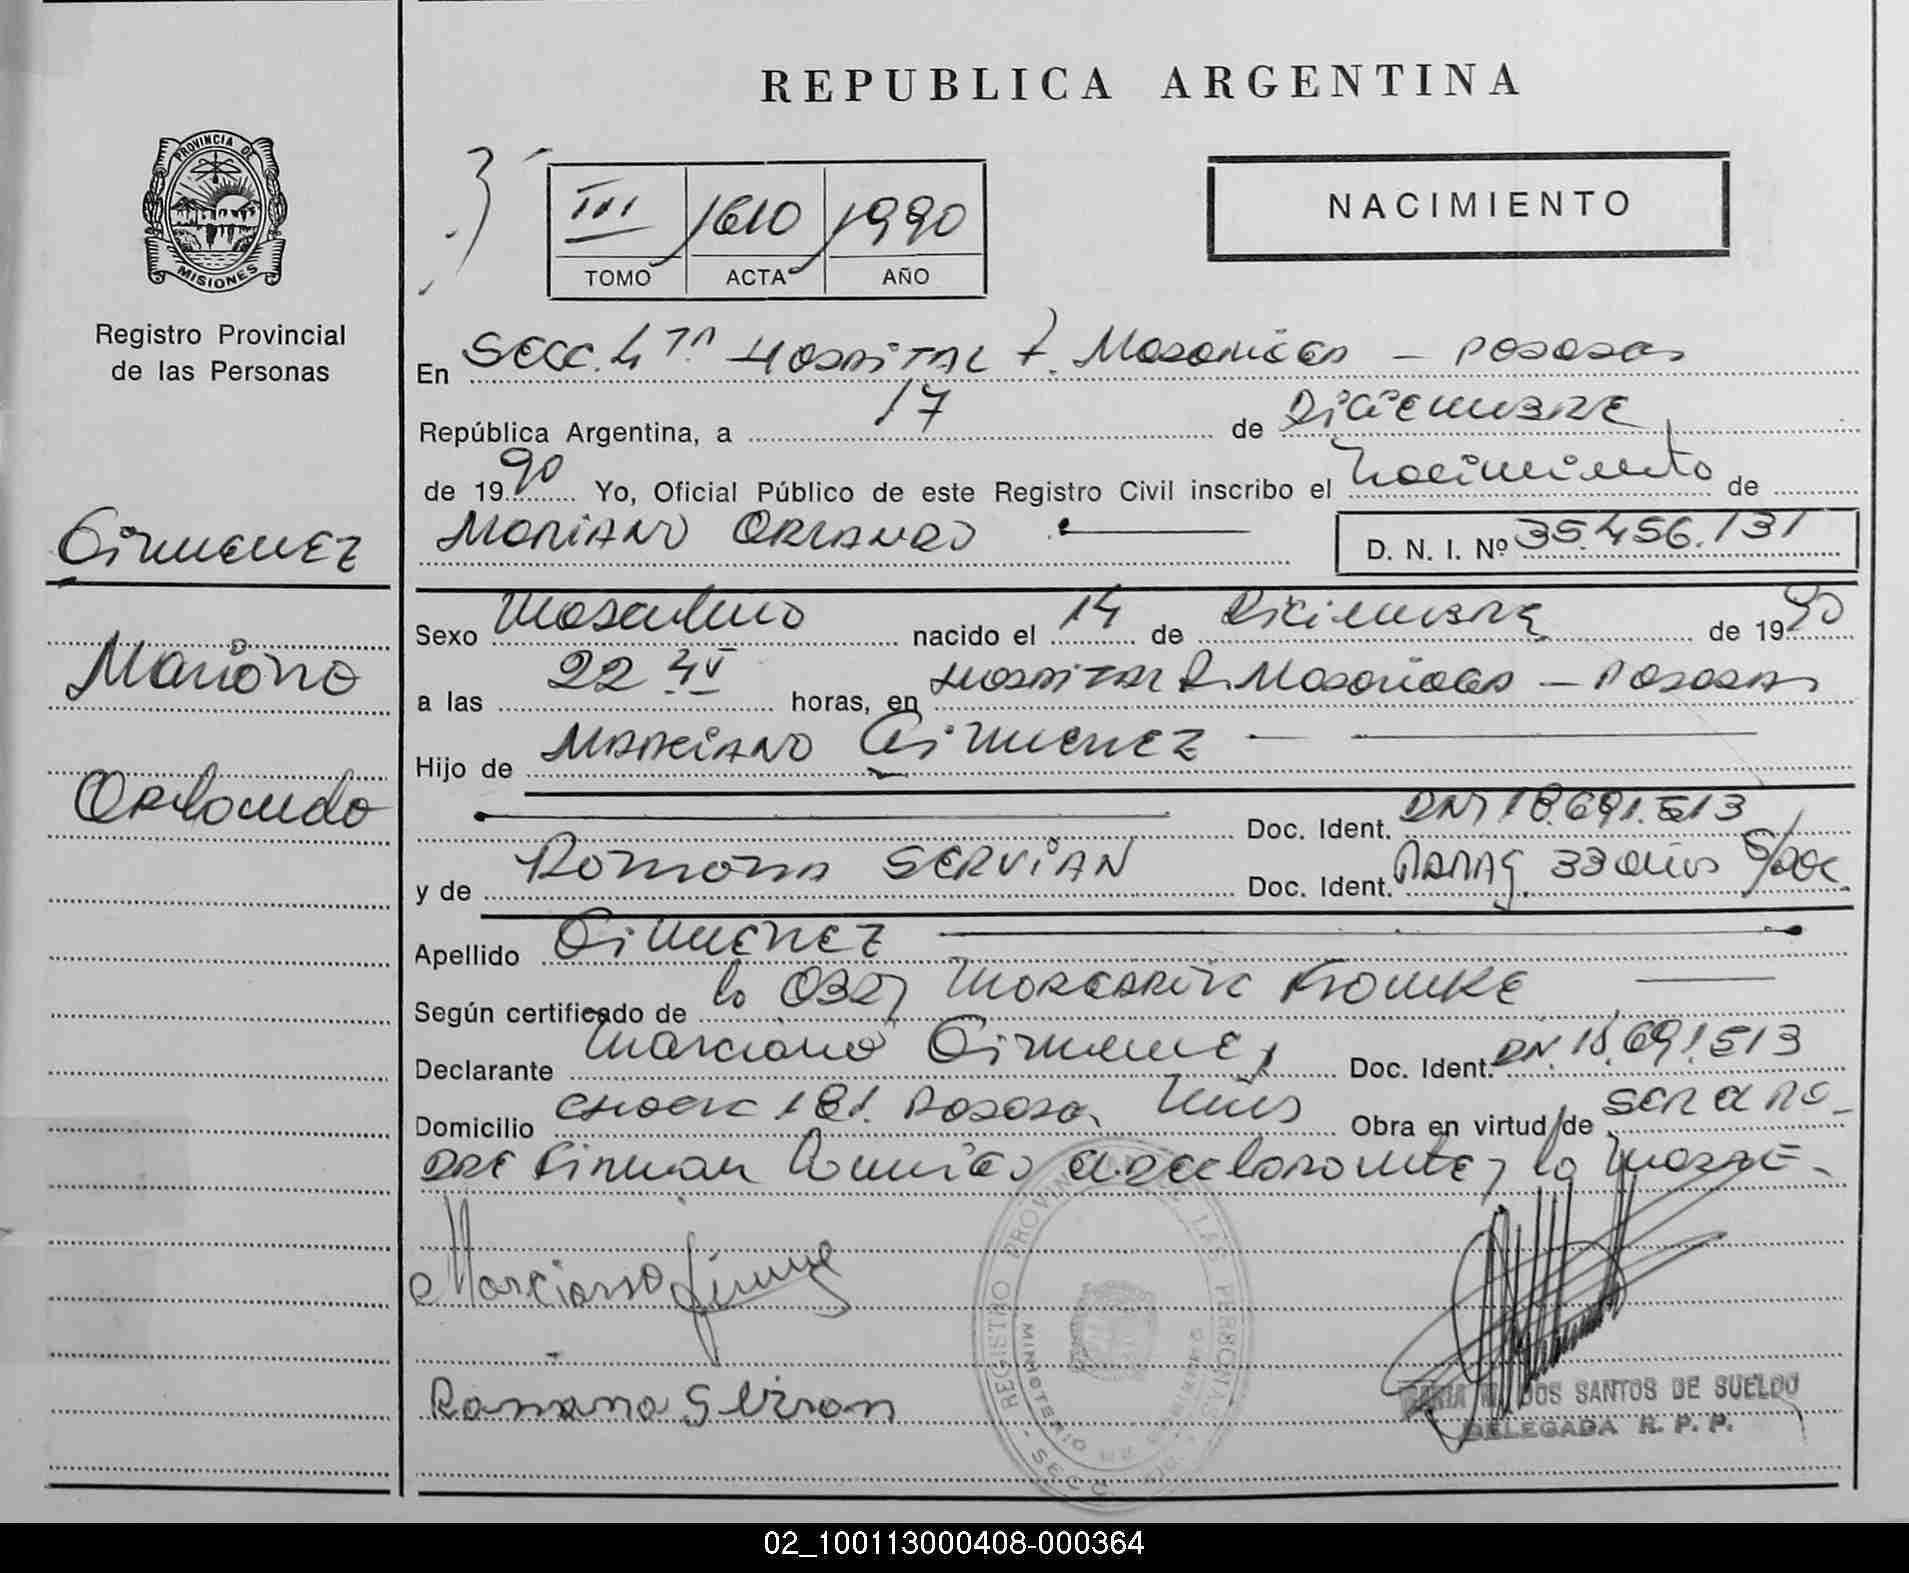 REPUBLICA ARGENTINA
PROVINCIA DE
MISIONES
Registro Provincial
de las Personas
III 1610 1990
TOMO ACTA AÑO
NACIMIENTO
En SECC. 4TA HOSPITAL R. Madariaga - POSADAS
República Argentina, a 17 de Diciembre
de 1990 Yo, Oficial Público de este Registro Civil inscribo el Nacimiento de
MARIANO ORLANDO D. N. I. Nº 35.456.131
Gimenez
Mariano
Orlando
Sexo Masculino nacido el 14 de Diciembre de 1990
a las 22 horas, en HOSPITAL R. Madariaga - POSADAS
Hijo de MARCIANO GIMENEZ
Doc. Ident. DNI 18.691.513
y de Ramona SERVIAN Doc. Ident. PARAG. 33 años S/doc.
Apellido GIMENEZ
Según certificado de la Obst.
Declarante Marciano Gimenez Doc. Ident. DNI 18.691.513
Domicilio CHACRA 181. Posadas, Mnes Obra en virtud de SER EL PA-
DRE Firman Conmigo el declarante y la MADRE.-
Marciano Gimenez
Ramona Servian
REGISTRO PROVINCIAL DE LAS PERSONAS
MINISTERIO DE GOBIERNO
DOS SANTOS DE SUELDO
DELEGADA R. P. P.
02_100113000408-000364